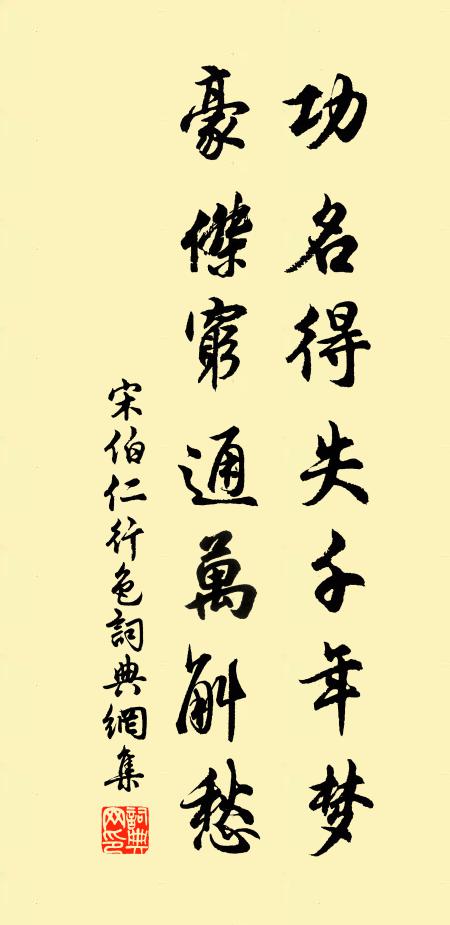 功名得失千年梦
豪傑窮通萬斛愁
宋伯仁行色詞典網集
詞典网印